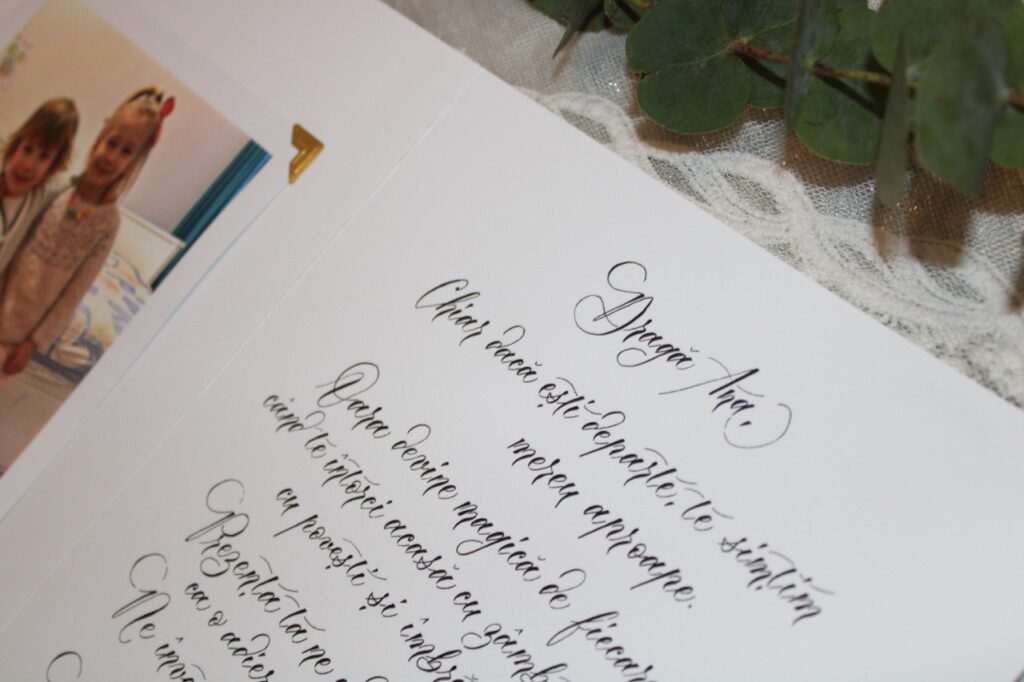 Dragă Ana,
Chiar dacă ești departe, te simțim
mereu aproape.
Vara devine magică de fiecar
când te întorci acasă cu zâmb
cu povești și îmbr
Prezența ta ne
ca o adier
Ne înv